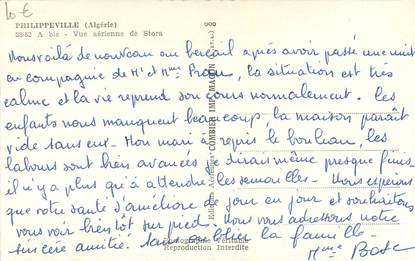 10 €
PHILIPPEVILLE (Algérie)
28-52 A bis - Vue aérienne de Stora
Nous voilà de nouveau au bercail après avoir passé une nuit
en compagnie de Mr et Mme, la situation est très
calme et la vie reprend son cours normalement. Les
enfants nous manquent beaucoup la maison paraît
vide sans eux - Mon mari a repris le bouleau, les
labours sont bien avancés je dirais même presque finis
il n'y a plus qu'à attendre les semailles - Nous espérons
que votre santé s'améliore de jour en jour et souhaitons
vous voir bientôt sur pied. Nous vous adressons notre
sincère amitié. Sans oublier la famille -
Mme Bosc
COMBIER IMP. MACON
Reproduction Interdite